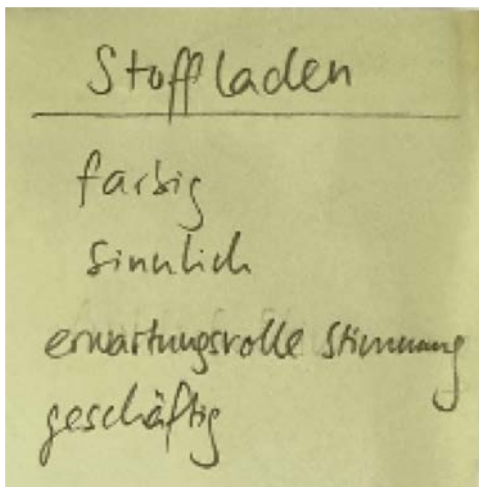 Stoffladen
farbig
sinnlich
erwartungsvolle Stimmung
geschäftig